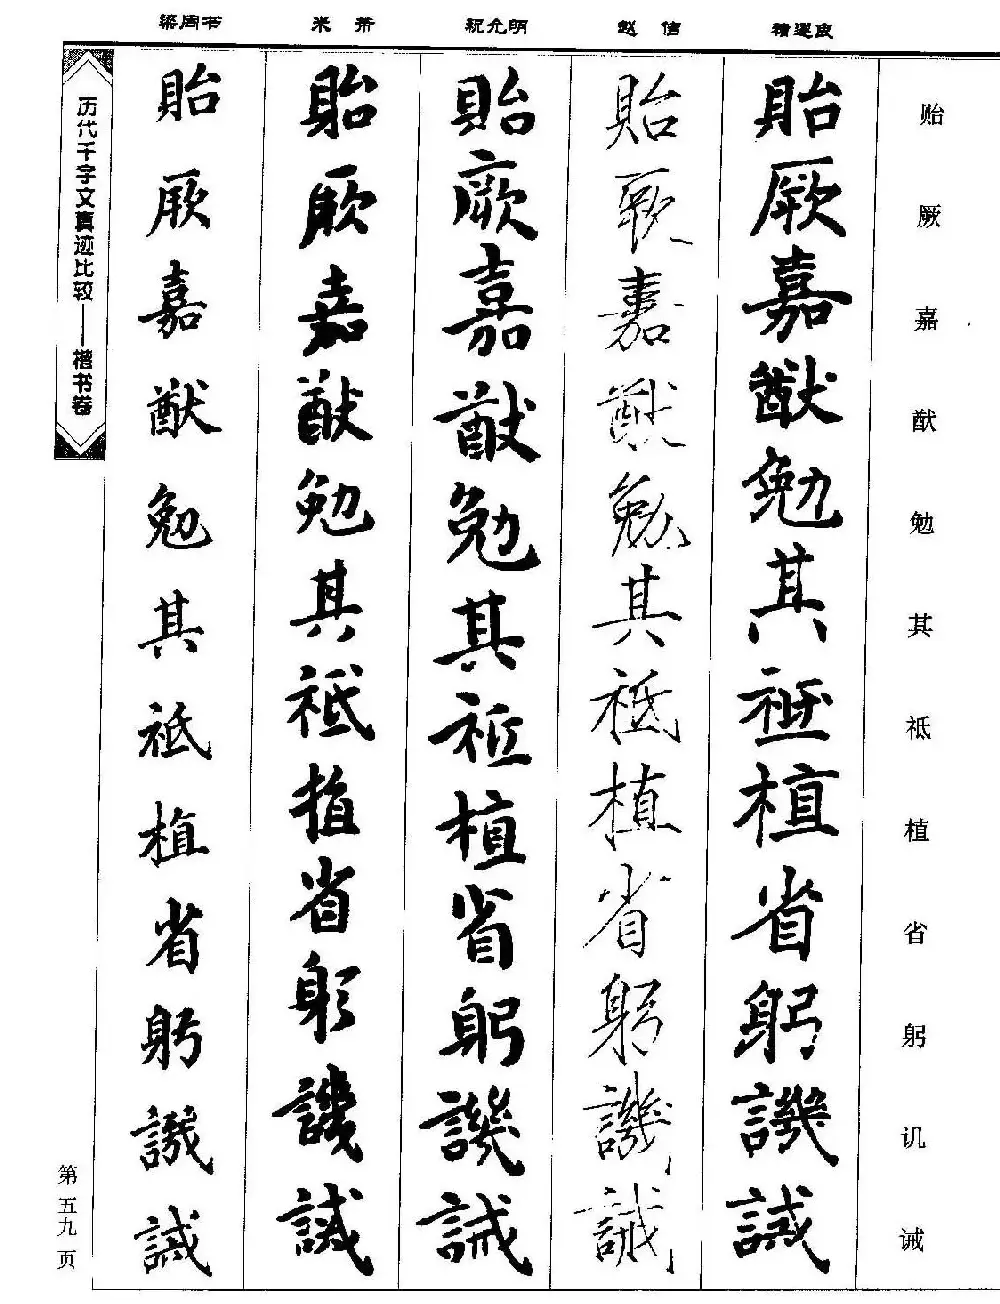 贻厥嘉猷勉其祗植省躬讥诫
褚遂良
貽厥嘉猷勉其祗植省躬譏誡
赵佶
貽厥嘉猷勉其祗植省躬譏誡
祝允明
貽厥嘉猷勉其祗植省躬譏誡
米芾
貽厥嘉猷勉其祗植省躬譏誡
梁周书
貽厥嘉猷勉其祗植省躬譏誡
历代千字文真迹比较——楷书卷
第五九页